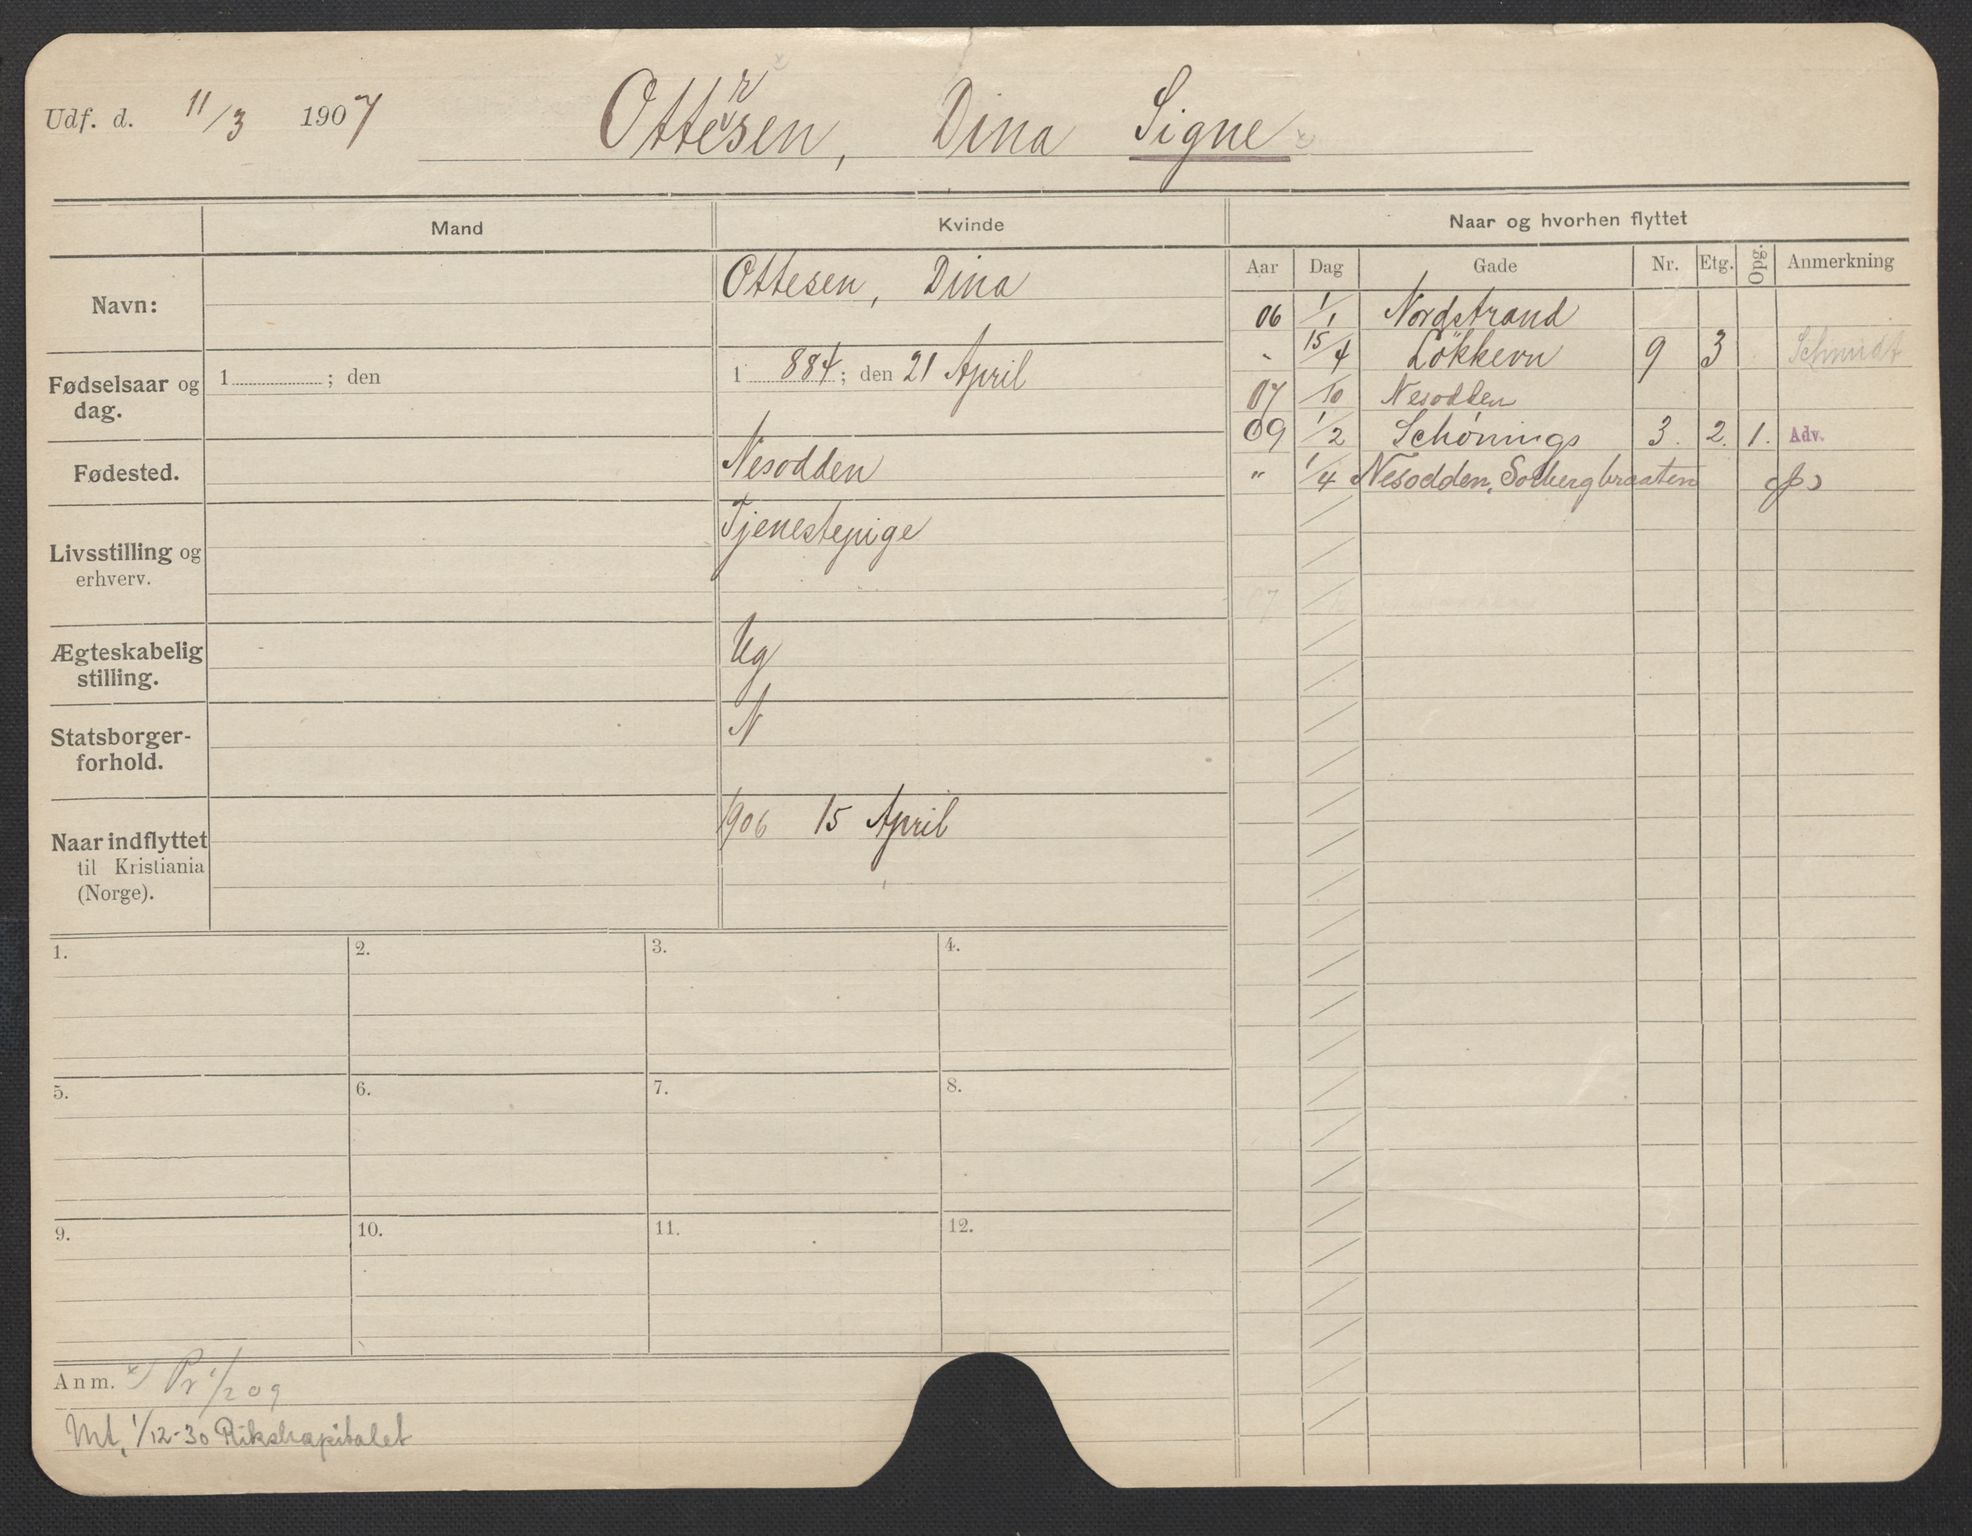 Udf. d. 11/3 1907 Ottersen, Dina Signe
Mand Kvinde Naar og hvorhen flyttet
Aar Dag Gade Nr. Etg. Opg. Anmerkning
Navn: Ottesen, Dina
Fødselsaar og dag. 1 ; den 1 884 ; den 21 April
Fødested. Nesodden
Livsstilling og erhverv. Tjenestepige
Ægteskabelig stilling. Ug
Statsborger-forhold. N
Naar indflyttet til Kristiania (Norge). 1906 15 April
06 1/1 Nordstrand
" 15/4 Løkkevn 9 3 Schmidt
07 /10 Nesodden
09 1/2 Schønings 3. 2. 1. Adv.
" 1/4 Nesodden, Solbergbraaten
1. 2. 3. 4.
5. 6. 7. 8.
9. 10. 11. 12.
Anm. x) Pr 1/2 09
Mt. 1/12-30 Rikshospitalet